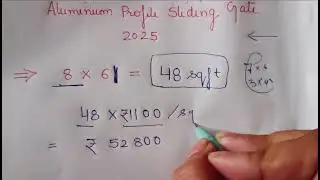 Aluminium Profile Sliding Gate
2025
⇒ 8 × 6 = 48 sqft
48 × ₹1100 /sq
= ₹ 52800